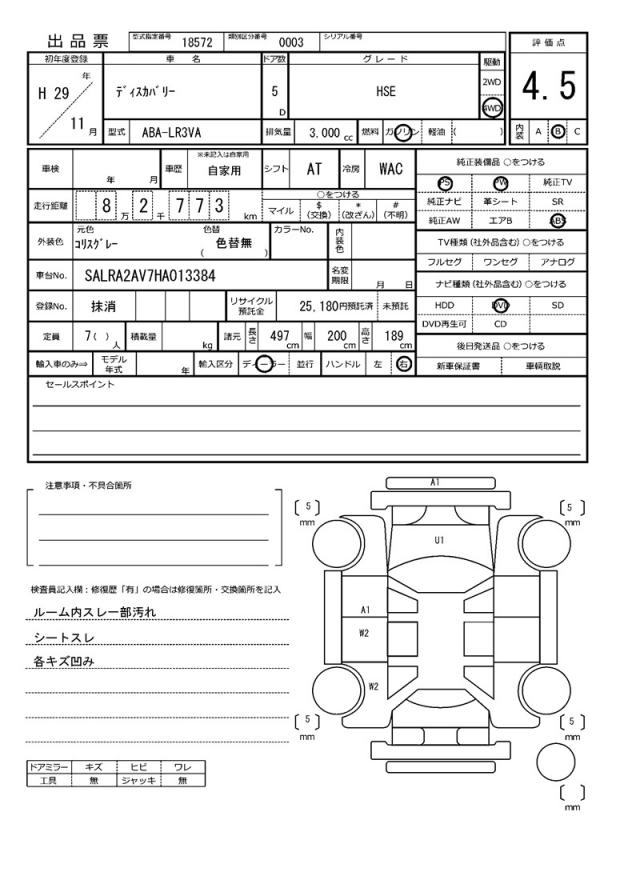 出品票 型式指定番号 18572 類別区分番号 0003 シリアル番号
評価点
4.5
内装 A B C
初年度登録 車名 ドア数 グレード 駆動
H 29 年 11 月 ディスカバリー 5 D HSE 2WD 4WD
型式 ABA-LR3VA 排気量 3,000 cc 燃料 ガソリン 軽油 ( )
車検 年 月 車歴 ※未記入は自家用 自家用 シフト AT 冷房 WAC
走行距離 8 万 2 千 7 7 3 km ○をつける
マイル $ (交換) * (改ざん) # (不明)
外装色 元色 コリスグレー 色替 ( 色替無 ) カラーNo. 内装色
車台No. SALRA2AV7HA013384 名変期限 月 日
登録No. 抹消 リサイクル預託金 25,180円預託済 未預託
定員 7( )人 積載量 kg 諸元 長さ 497cm 幅 200cm 高さ 189cm
輸入車のみ⇒ モデル年式 年 輸入区分 ディーラー 並行 ハンドル 左 右
純正装備品 ○をつける
PS PW 純正TV
純正ナビ 革シート SR
純正AW エアB ABS
TV種類 (社外品含む) ○をつける
フルセグ ワンセグ アナログ
ナビ種類 (社外品含む) ○をつける
HDD DVD SD
DVD再生可 CD
後日発送品 ○をつける
新車保証書 車輌取説
セールスポイント
注意事項・不具合箇所
検査員記入欄：修復歴「有」の場合は修復箇所・交換箇所を記入
ルーム内スレ一部汚れ
シートスレ
各キズ凹み
ドアミラー キズ ヒビ ワレ
工具 無 ジャッキ 無
A1
[ 5 ] mm
[ 5 ] mm
U1
A1
W2
W2
[ 5 ] mm
[ 5 ] mm
[ ] mm